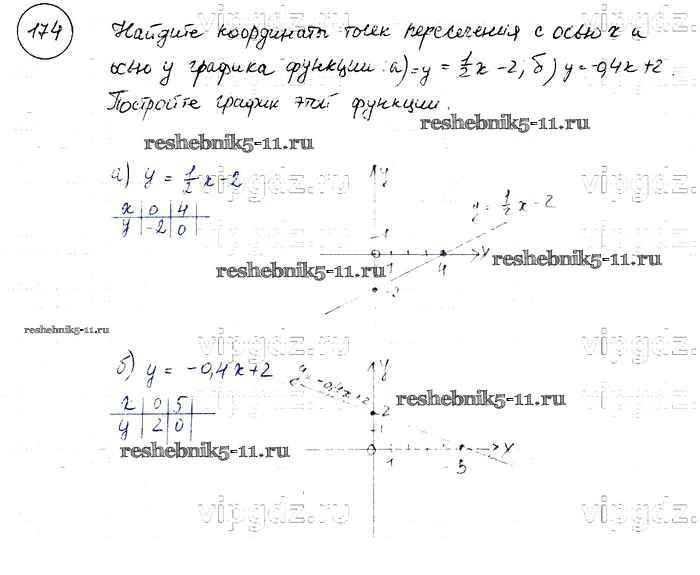 174
Найдите координаты точек пересечения с осью x и
осью y графика функции: а) y = 1/2 x - 2, б) y = -0,4x + 2.
Постройте график этой функции.
vipgdz.ru
reshebnik5-11.ru
reshebnik5-11.ru
а) y = 1/2 x - 2
vipgdz.ru
vipgdz.ru
x | 0 | 4
y | -2 | 0
y
y = 1/2 x - 2
1
0 1 4 x
-2
reshebnik5-11.ru
reshebnik5-11.ru
reshebnik5-11.ru
vipgdz.ru
vipgdz.ru
б) y = -0,4x + 2
y = -0,4x + 2
y
x | 0 | 5
y | 2 | 0
2
1
0 1 5 x
reshebnik5-11.ru
reshebnik5-11.ru
vipgdz.ru
vipgdz.ru